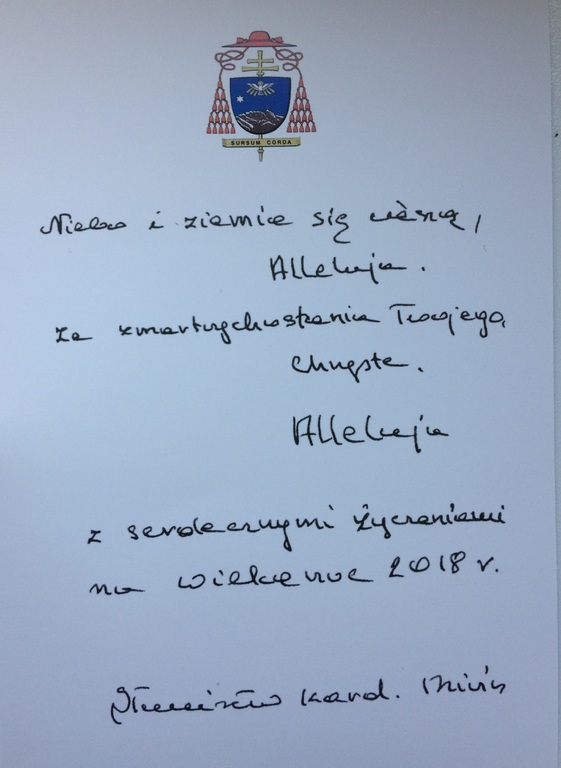 SURSUM CORDA
Niebo i ziemia się cieszą,
Alleluja.
Ze zmartwychwstania Twojego,
Chryste.
Alleluja
z serdecznymi życzeniami
na wielkanoc 2018 r.
Stanisław kard. Dziwisz